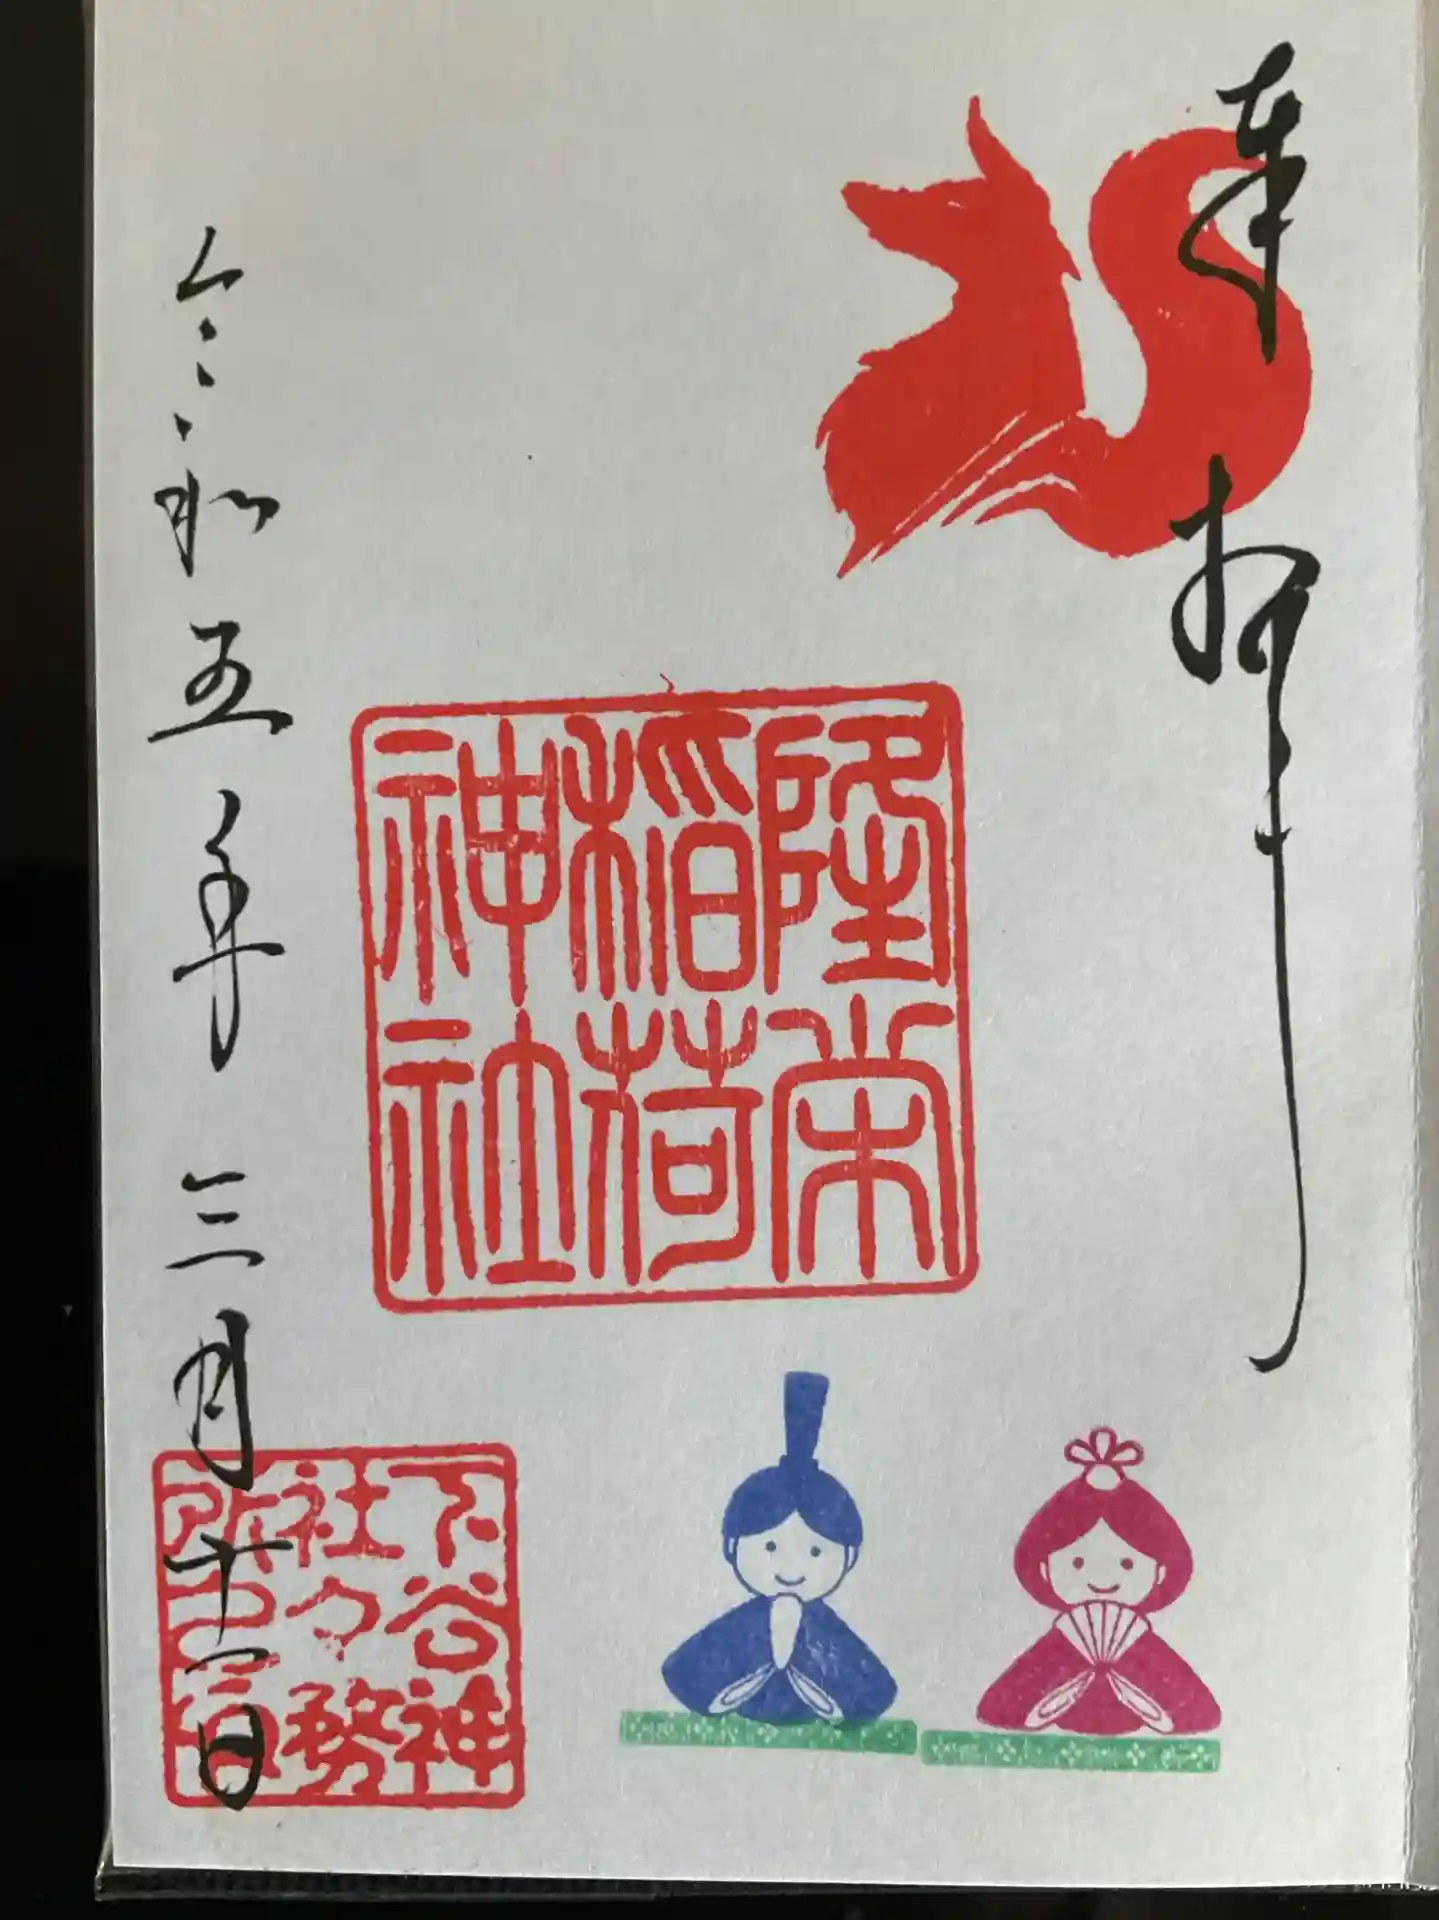 奉拝
隆栄
稲荷
神社
令和五年三月十一日
下谷神
社々務
所之印